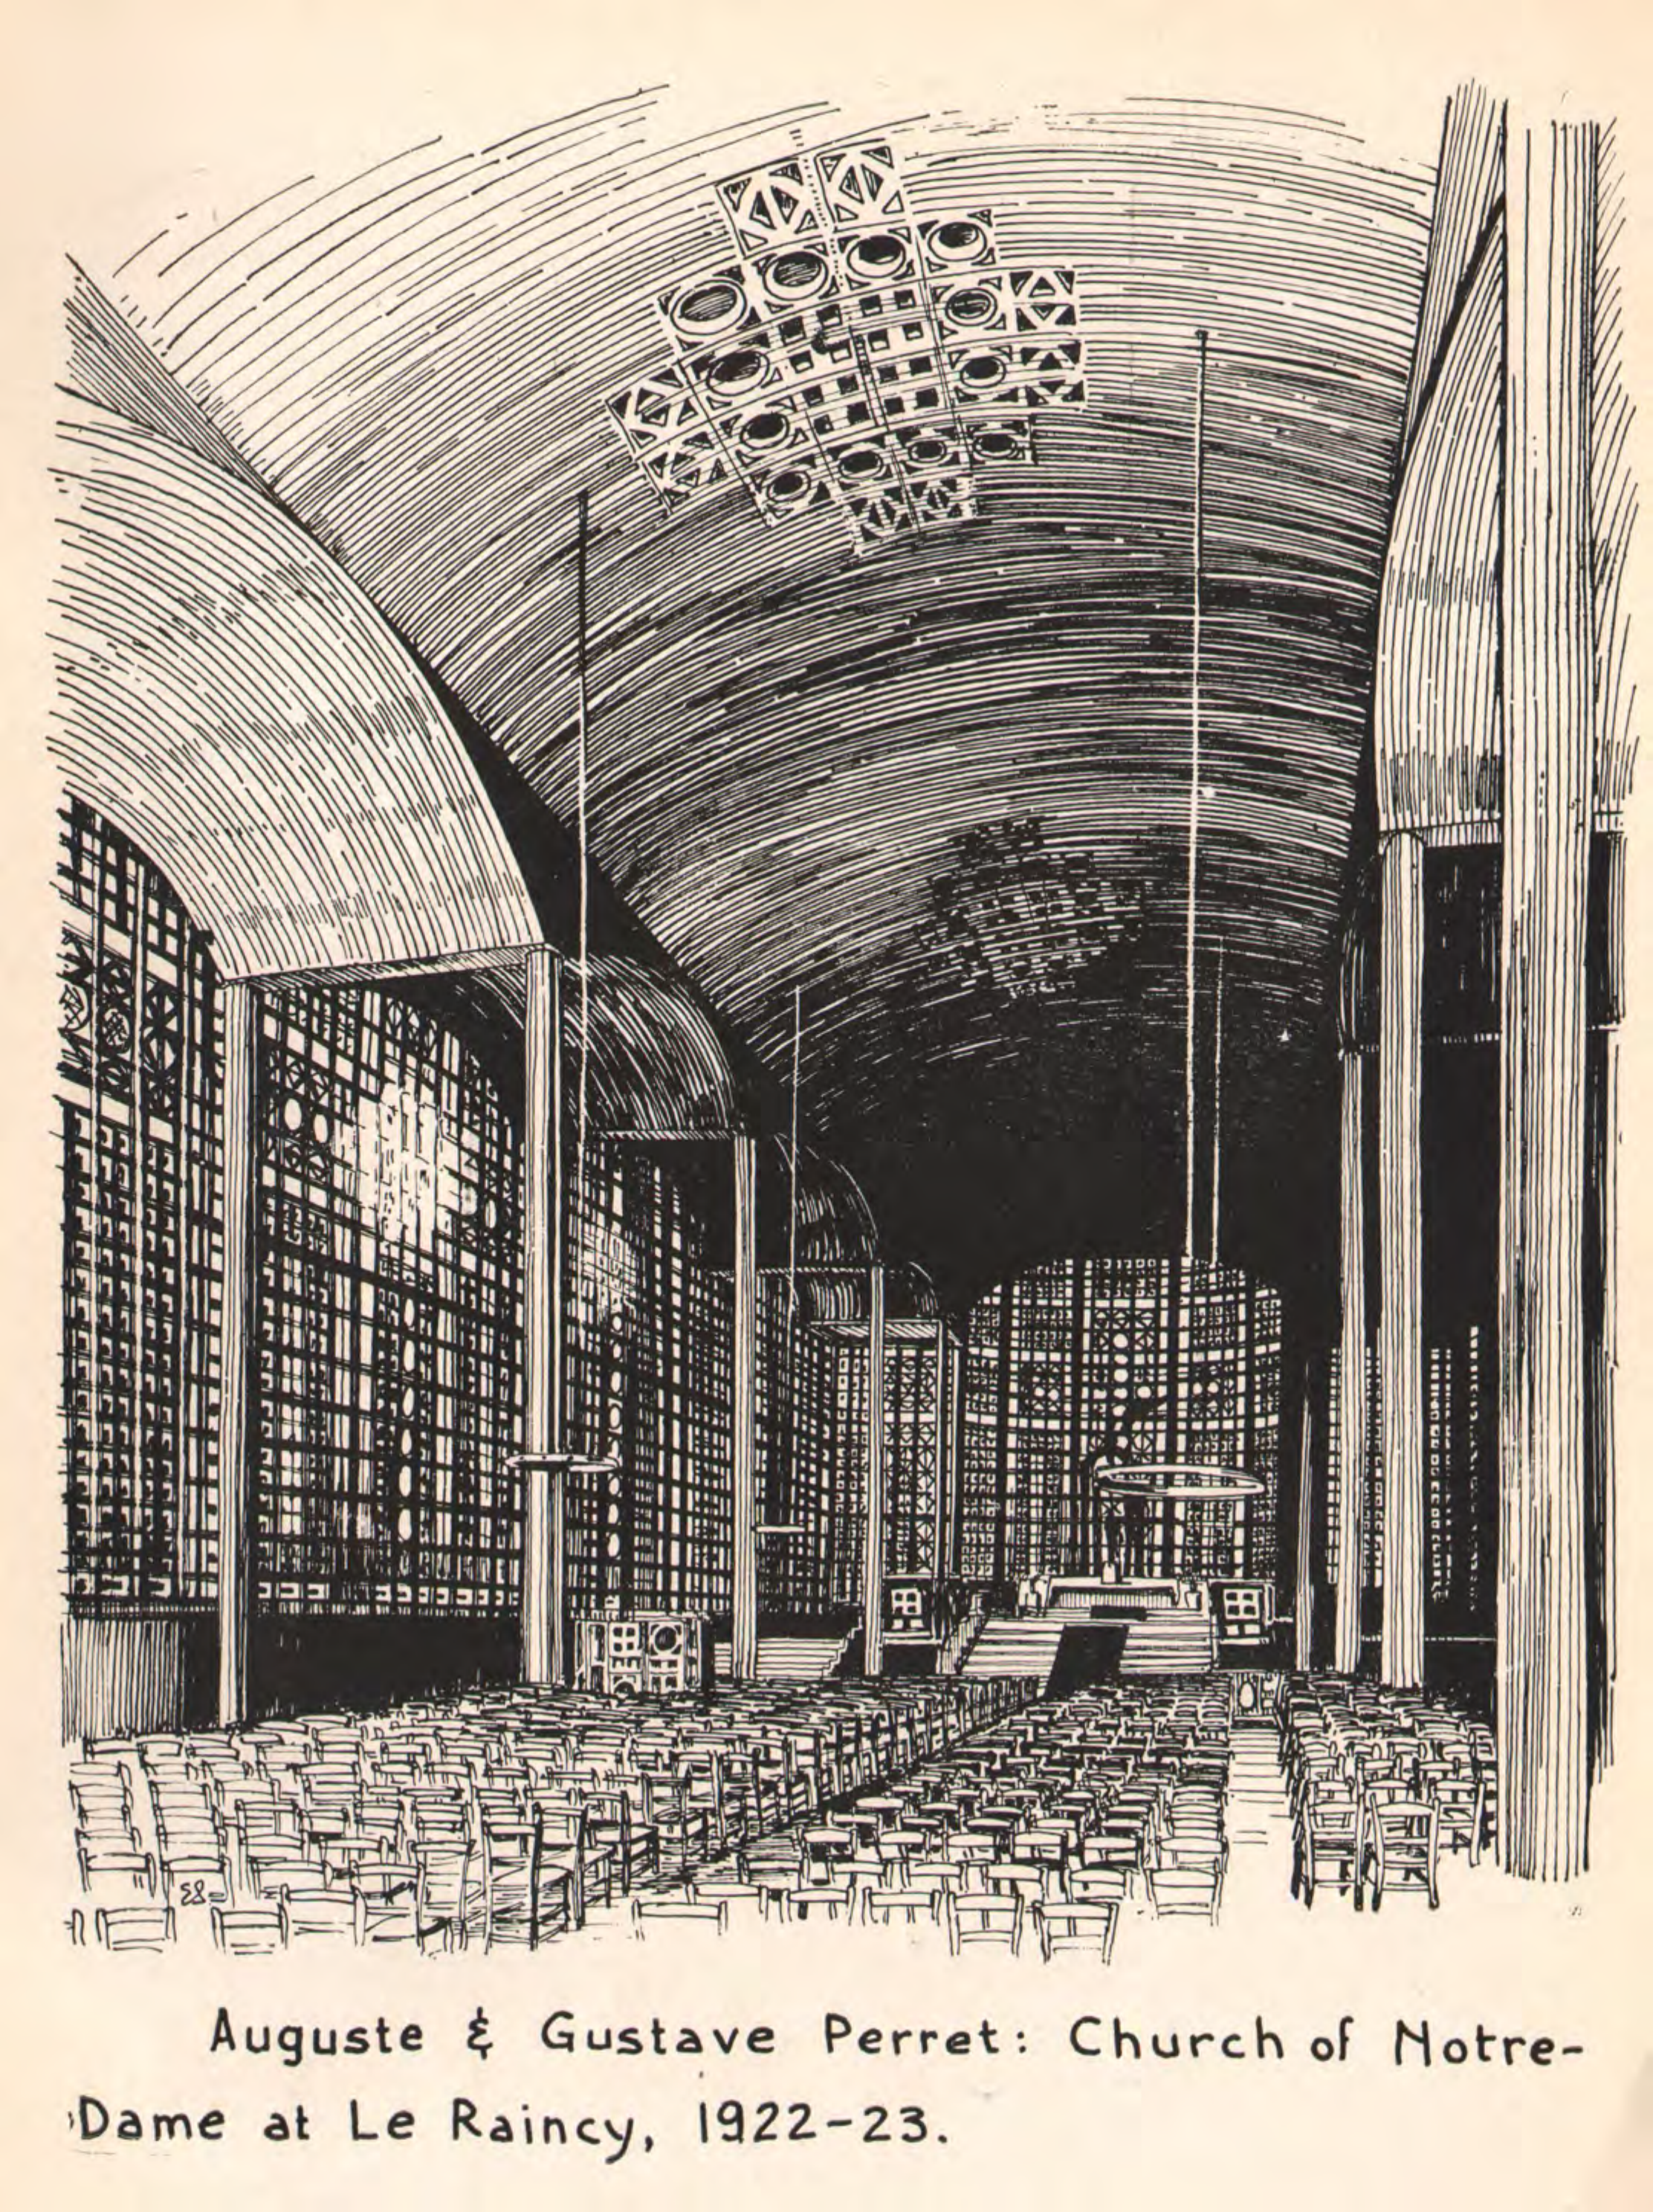 ES
Auguste & Gustave Perret: Church of Notre-
Dame at Le Raincy, 1922-23.